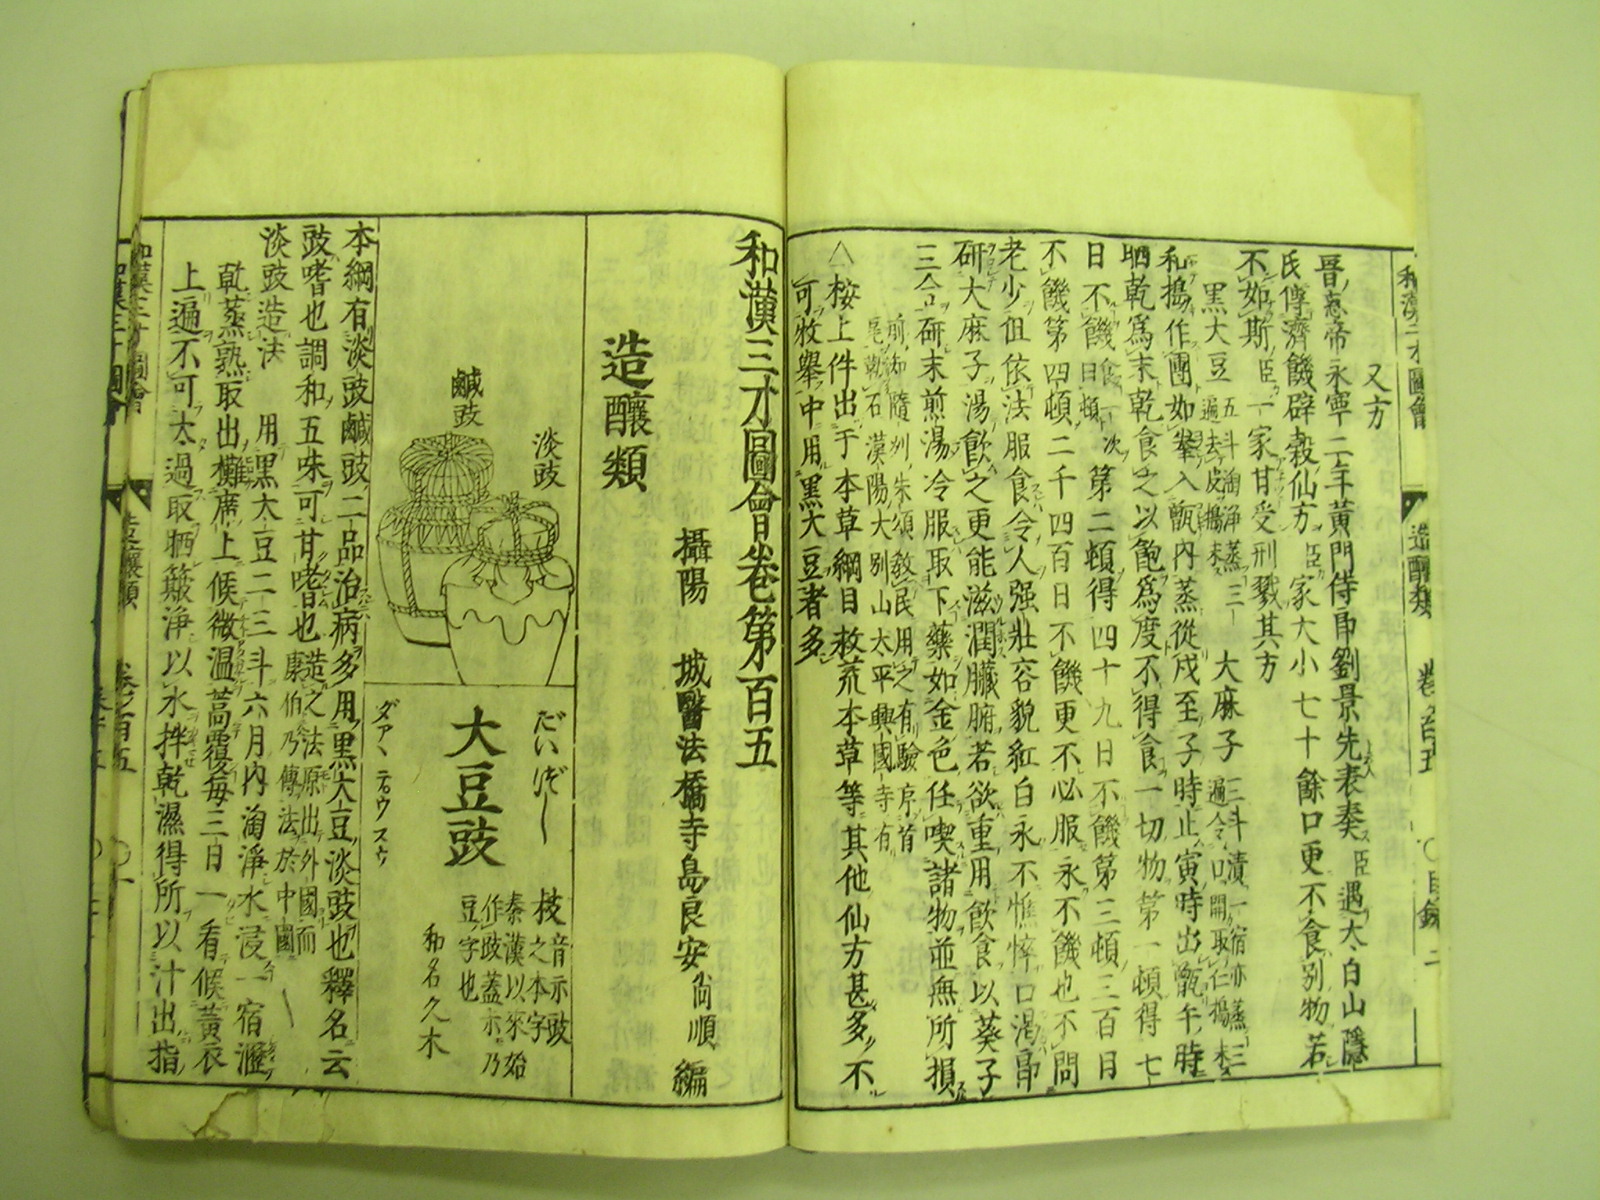 和漢三才圖會　造釀類　卷ノ百五　〇目錄　二
又方
晉惠帝永寧二年黃門侍郎劉景先表奏臣遇太白山隱
氏傳濟饑辟穀仙方臣家大小七十餘口更不食別物若
不如斯臣一家甘受刑戮其方
黑大豆五斗淘淨蒸三遍去皮搗末　大麻子三斗漬一宿亦蒸三遍令口開取仁搗末
和搗作團如拳入甑內蒸從戌至子時止寅時出甑午時
晒乾爲末乾食之以飽爲度不得食一切物第一頓得七
日不饑第二頓得四十九日不饑第三頓三百日
不饑第四頓二千四百日不饑更不必服永不饑也不問
老少但依法服食令人强壯容貌紅白永不憔悴口渴卽
研大麻子湯飮之更能滋潤臟腑若欲重用飮食以葵子
三合研末煎湯冷服取下藥如金色任喫諸物並無所損
前知隨州朱頌敎民用之有驗序首尾勒石漢陽大別山太平興國寺有
△桉上件出于本草綱目救荒本草等其他仙方甚多不
可枚擧中用黑大豆者多
和漢三才圖會卷第百五
攝陽　城醫法橋寺島良安尙順　編
造釀類
淡豉
鹹豉
だいづし
大豆豉
ダアヽテウスウ
枝音示豉之本字
秦漢以來始作豉蓋朩乃豆字也
和名久木
本綱有淡豉鹹豉二品治病多用黑大豆淡豉也釋名云
豉嗜也調和五味可甘嗜也造之法原出外國而康伯乃傳法於中國
淡豉造法　用黑大豆二三斗六月內淘淨水浸一宿瀝
乾蒸熟取出攤席上候微溫蒿覆每三日一看候黃衣
上遍不可太過取晒簸淨以水拌乾濕得所以汁出指
和漢三才圖會　造釀類　卷ノ百五　〇一